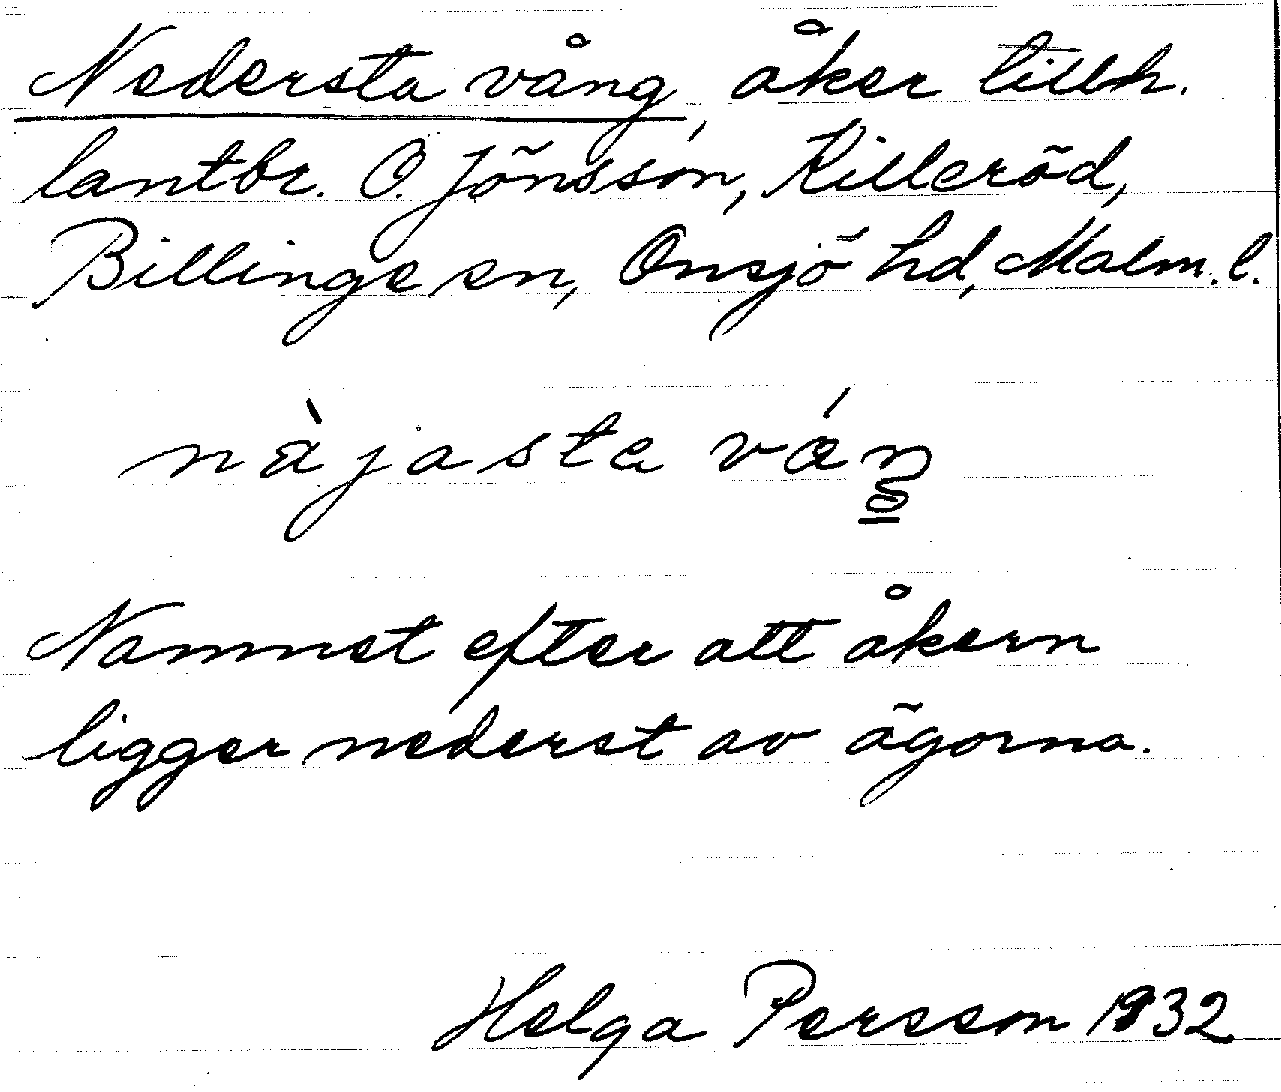 Nedersta vång, åker tillh.
lantbr. O. Jönsson, Killeröd,
Billinge sn, Onsjö hd, Malm. l.
nàjasta váŋ
Namnet efter att åkern
ligger nederst av ägorna.
Helga Persson 1932